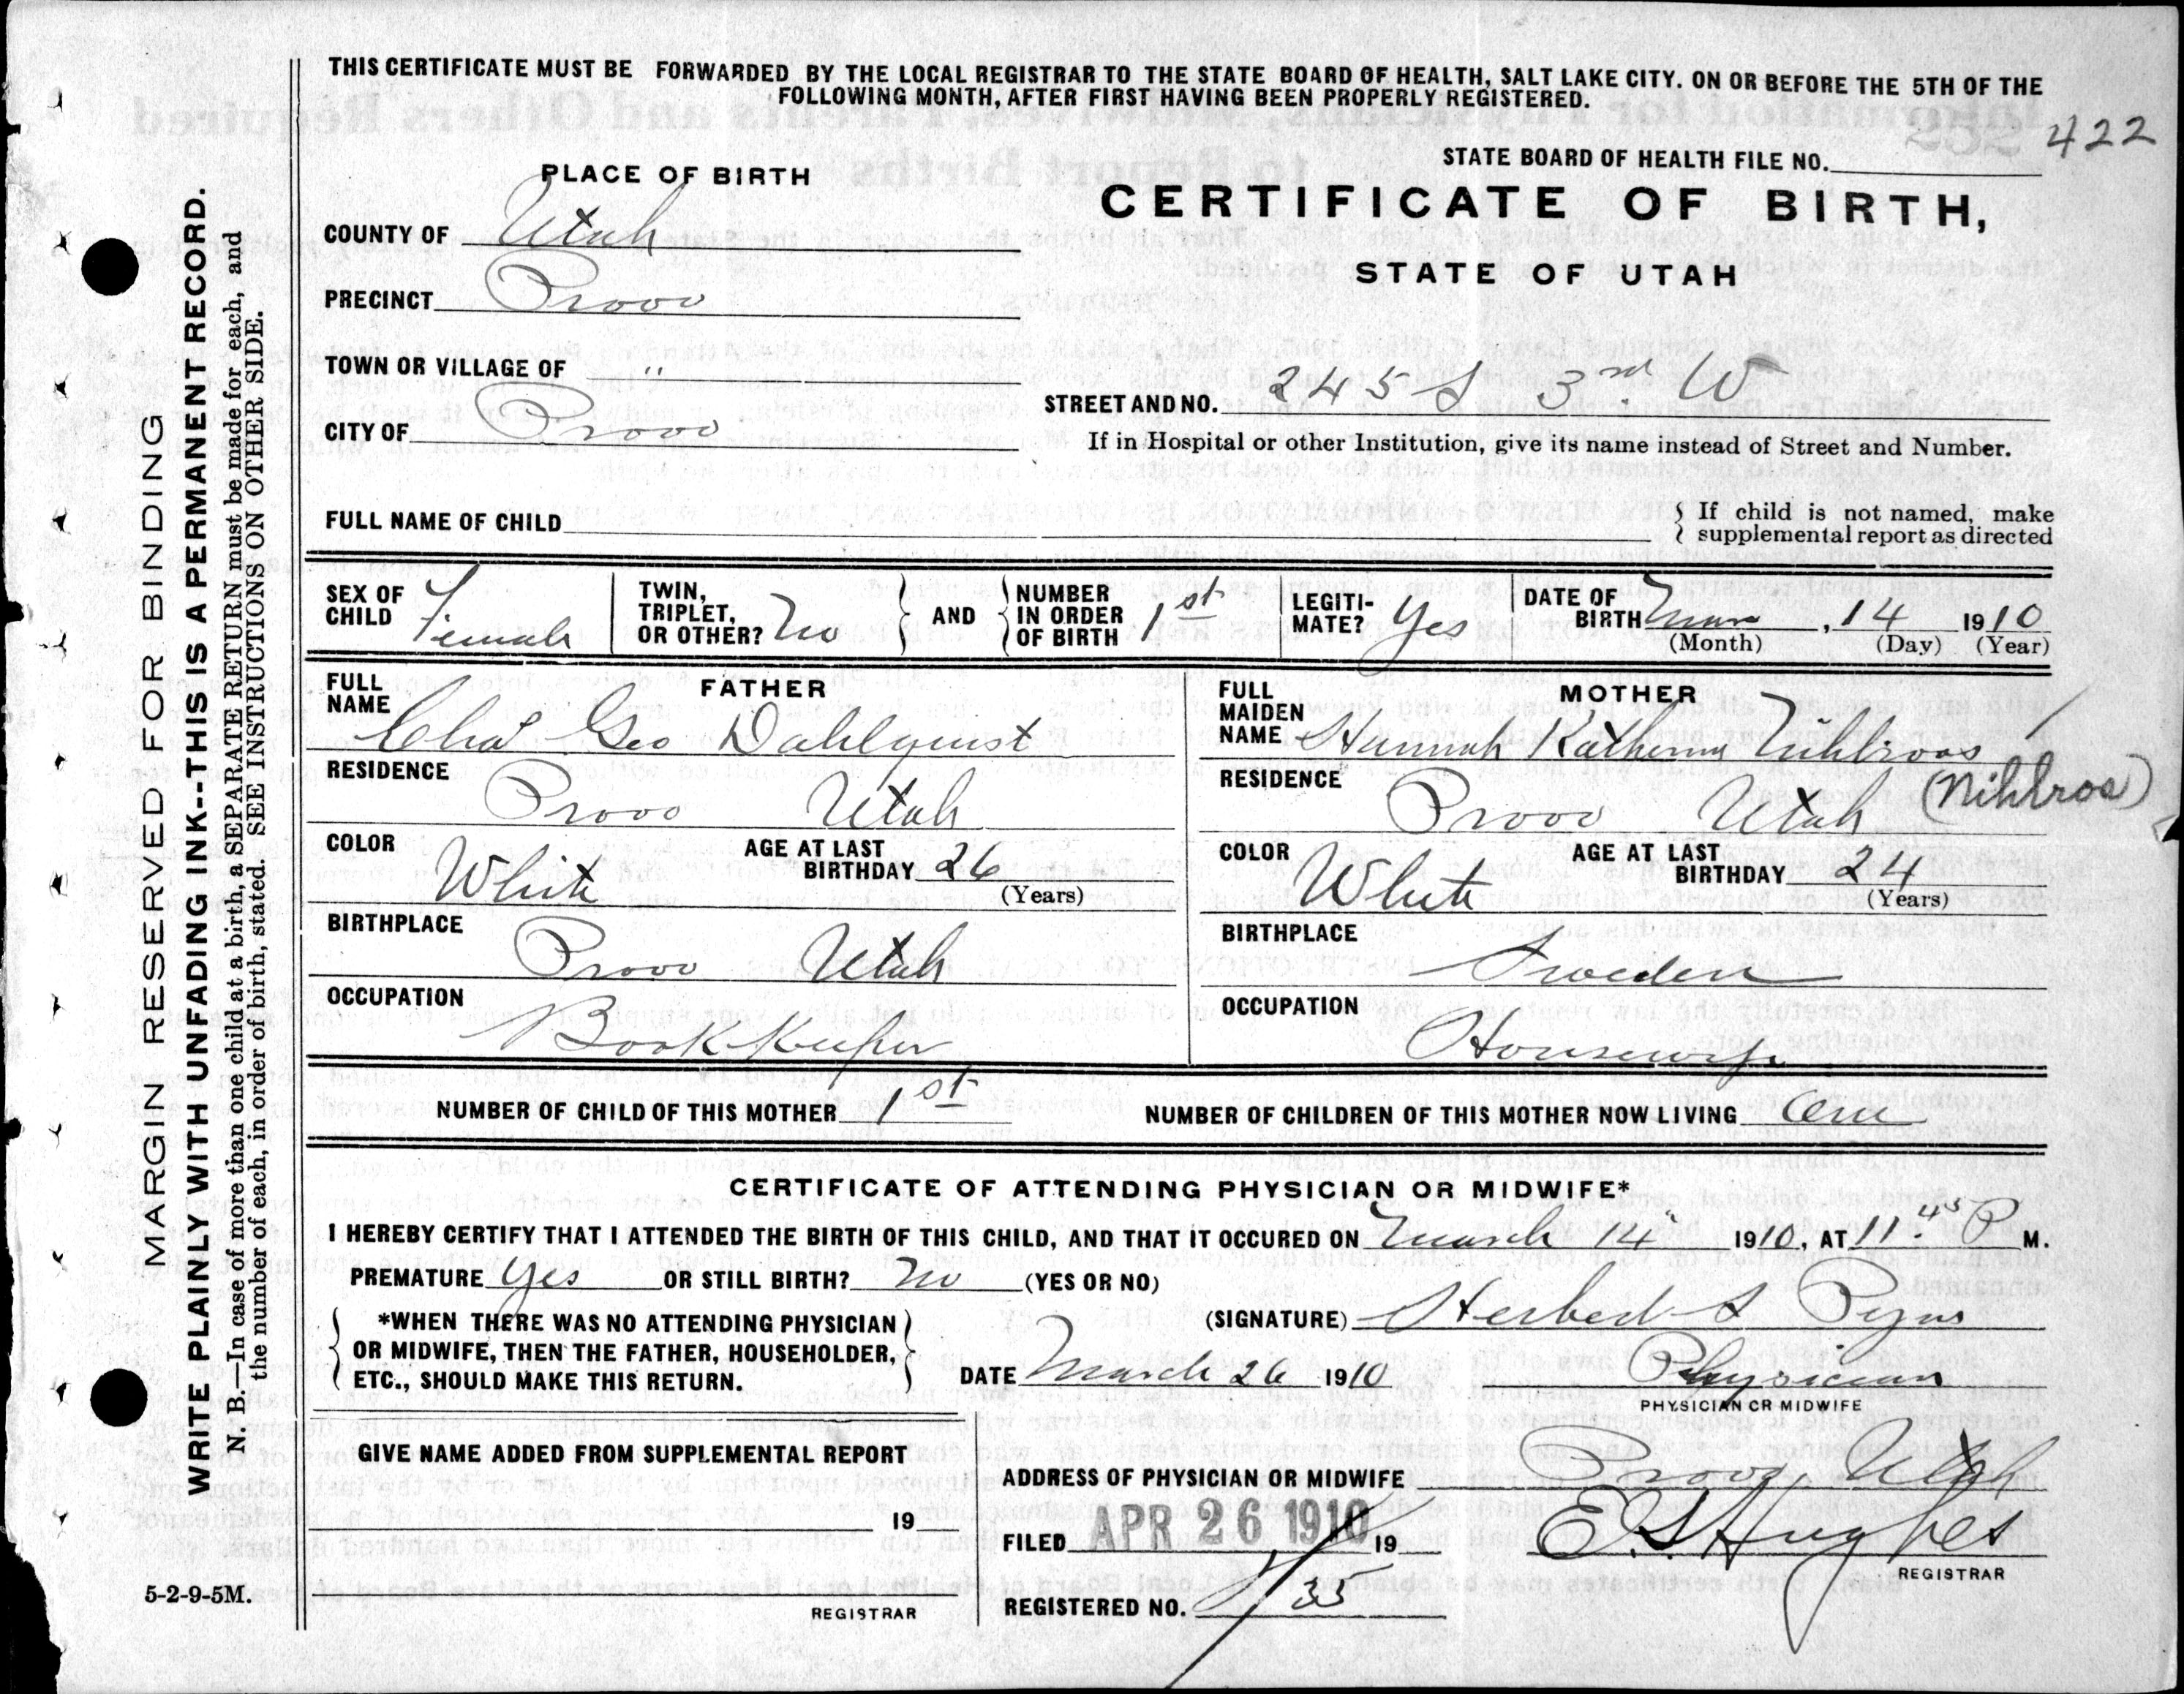 THIS CERTIFICATE MUST BE FORWARDED BY THE LOCAL REGISTRAR TO THE STATE BOARD OF HEALTH, SALT LAKE CITY. ON OR BEFORE THE 5TH OF THE
FOLLOWING MONTH, AFTER FIRST HAVING BEEN PROPERLY REGISTERED.
422
STATE BOARD OF HEALTH FILE NO.
PLACE OF BIRTH
CERTIFICATE OF BIRTH,
STATE OF UTAH
COUNTY OF Utah
PRECINCT Provo
TOWN OR VILLAGE OF "
CITY OF Provo
STREET AND NO. 245 S 3rd. W
If in Hospital or other Institution, give its name instead of Street and Number.
FULL NAME OF CHILD
If child is not named, make
supplemental report as directed
SEX OF CHILD Female
TWIN, TRIPLET, OR OTHER? No
AND
NUMBER IN ORDER OF BIRTH 1st
LEGITI-MATE? Yes
DATE OF BIRTH Mar, 14 1910
(Month) (Day) (Year)
FATHER
FULL NAME Chas Geo Dahlquist
RESIDENCE Provo Utah
COLOR White
AGE AT LAST BIRTHDAY 26
(Years)
BIRTHPLACE Provo Utah
OCCUPATION Book Keeper
MOTHER
FULL MAIDEN NAME Hannah Katherina Nihlroos
(Nihlros)
RESIDENCE Provo Utah
COLOR White
AGE AT LAST BIRTHDAY 24
(Years)
BIRTHPLACE Sweden
OCCUPATION Housewife
NUMBER OF CHILD OF THIS MOTHER 1st
NUMBER OF CHILDREN OF THIS MOTHER NOW LIVING One
CERTIFICATE OF ATTENDING PHYSICIAN OR MIDWIFE*
I HEREBY CERTIFY THAT I ATTENDED THE BIRTH OF THIS CHILD, AND THAT IT OCCURED ON March 14" 1910, AT 11.45 P M.
PREMATURE Yes OR STILL BIRTH? No (YES OR NO)
*WHEN THERE WAS NO ATTENDING PHYSICIAN
OR MIDWIFE, THEN THE FATHER, HOUSEHOLDER,
ETC., SHOULD MAKE THIS RETURN.
(SIGNATURE) Herbert S Pyne
DATE March 26 1910
Physician
PHYSICIAN OR MIDWIFE
GIVE NAME ADDED FROM SUPPLEMENTAL REPORT
19
REGISTRAR
ADDRESS OF PHYSICIAN OR MIDWIFE Provo, Utah
FILED APR 26 1910 19
E. S. Hughes
REGISTRAR
REGISTERED NO. 35
5-2-9-5M.
MARGIN RESERVED FOR BINDING
WRITE PLAINLY WITH UNFADING INK--THIS IS A PERMANENT RECORD.
N. B.—In case of more than one child at a birth, a SEPARATE RETURN must be made for each, and
the number of each, in order of birth, stated. SEE INSTRUCTIONS ON OTHER SIDE.